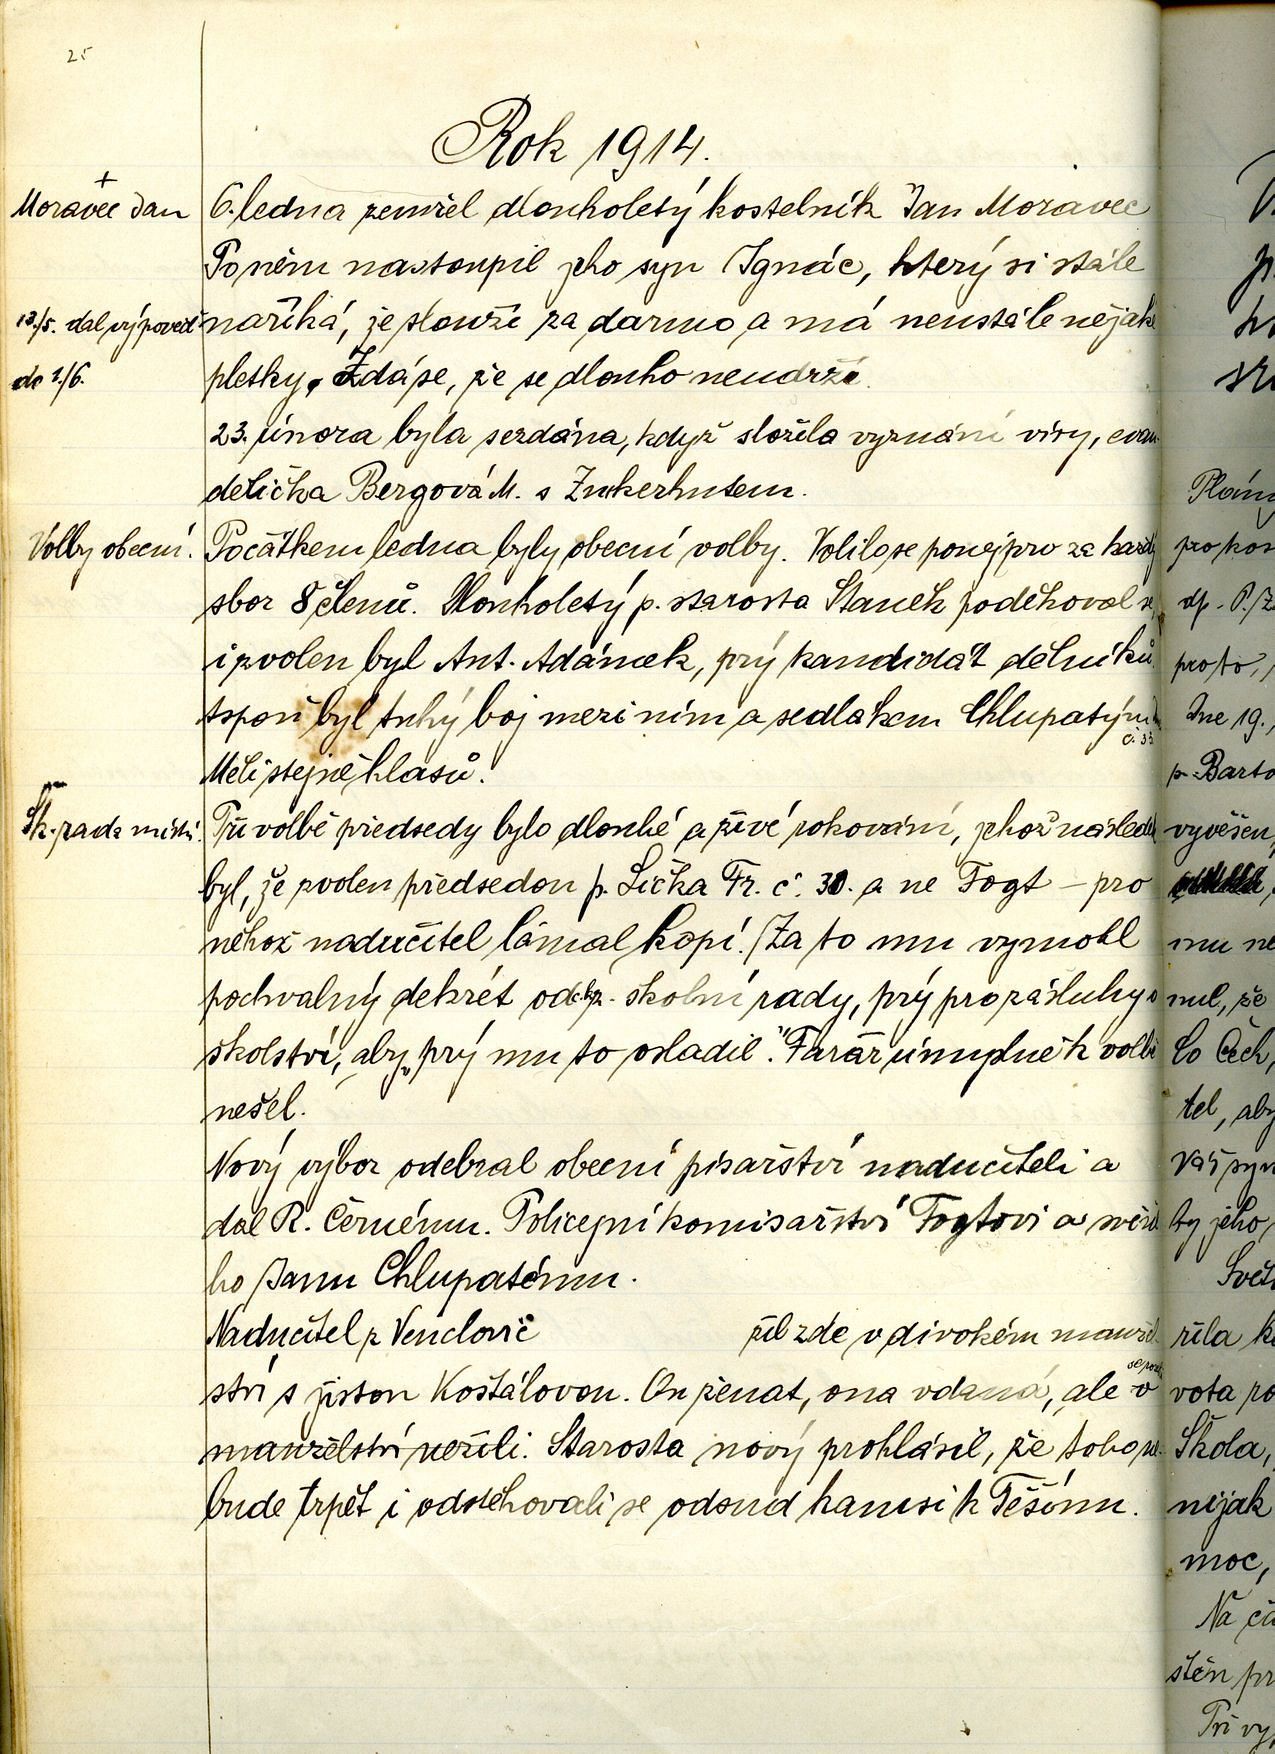 25
Rok 1914.
+
Moravec Jan
6. ledna zemřel dlouholetý kostelník Jan Moravec
Po něm nastoupil jeho syn Ignác, který si stále
13./5. dal výpověď
naříká, že slouží za darmo a má neustále nějaké
do 1./6.
pletky. Zdá se, že se dlouho neudrží.
23. února byla sezdána, když složila vyznání víry, evan-
delička Bergová M. s Zukerhutem.
Volby obecní.
Počátkem ledna byly obecní volby. Volilo se ponejprv za každý
sbor 8 členů. Dlouholetý p. starosta Staněk poděkoval se,
i zvolen byl Ant. Adámek, prý kandidát dělníků,
aspoň byl tuhý boj mezi ním a sedlákem Chlupatým
č. 33.
Měli stejně hlasů.
Šk. rada místní.
Při volbě předsedy bylo dlouhé a živé rokování, jehož následek
byl, že zvolen předsedou p. Lička Fr. č. 30. a ne Fogt – pro
něhož nadučitel lámal kopí. Za to mu vymohl
pochvalný dekrét od okr. školní rady, prý pro zásluhy o
školství, aby „prý mu to osladil." Farář úmyslně k volbě
nešel.
Nový výbor odebral obecní písařství nadučiteli a
dal R. Černému. Policejní komisařství Fogtovi a
ho Janu Chlupatému.
Nadučitel z Venclovic žil zde v divokém manžel-
ství s jistou Košťálovou. On ženat, ona vdaná, ale v
manželství nežili. Starosta nový prohlásil, že toho ne-
bude trpět i odstěhovali se odsud kamsi k Těšínu.
Plány
dp. P.
proto,
Dne 19.,
p. Barto
vyvěšen,
mu ne
nul, že
lo Čech,
tel, aby
Váš syn
by jeho
Svět
říla k
vota po
Škola,
nijak
moc,
Na ča
stěn pr
Při vy